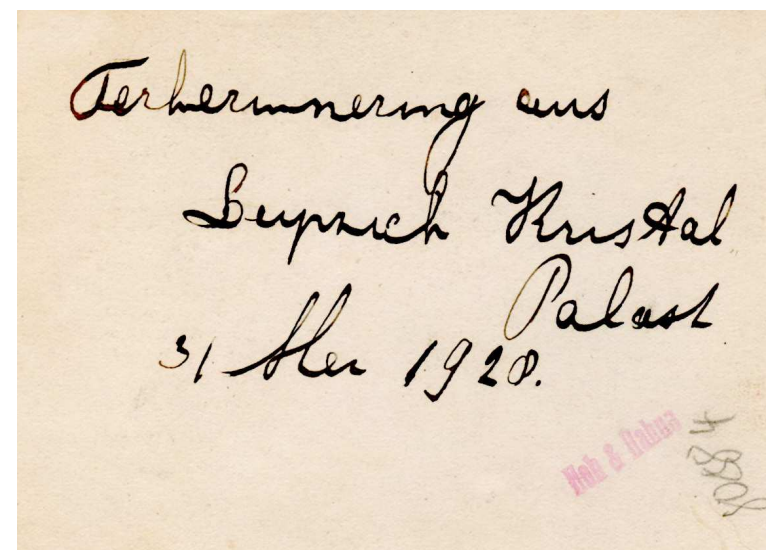 Terherinnering aus
Leipzich Kristal
Palast
31 Mei 1928.
8084